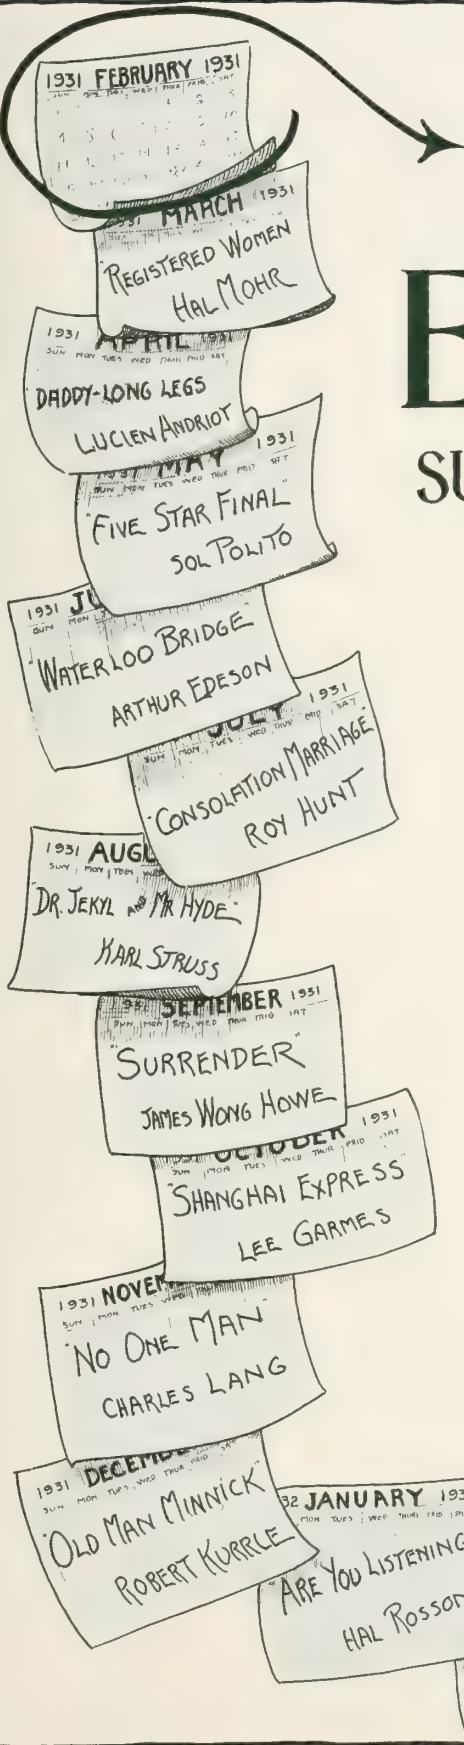 1931 FEBRUARY 1931
SUN TUES WED THUR FRID SAT
MARCH 1931
"REGISTERED WOMEN
HAL MOHR
1931 APRIL 1931
SUN MON TUES WED THUR FRID SAT
DADDY-LONG LEGS
LUCIEN ANDRIOT
MAY 1931
SUN MON TUES WED THUR FRID SAT
"FIVE STAR FINAL"
SOL POLITO
1931 JU
SUN MON
"WATERLOO BRIDGE"
ARTHUR EDESON
JULY 1931
SUN MON TUES WED THUR FRID SAT
"CONSOLATION MARRIAGE"
ROY HUNT
1931 AUGU
SUN MON TUES WE
"DR. JEKYL AND MR HYDE"
KARL STRUSS
SEPTEMBER 1931
SUN MON TUES WED THUR FRID SAT
"SURRENDER"
JAMES WONG HOWE
OCTOBER 1931
SUN MON TUES WED THUR FRID SAT
"SHANGHAI EXPRESS"
LEE GARMES
1931 NOVEM
SUN MON TUES WED
"NO ONE MAN"
CHARLES LANG
1931 DECEMB
SUN MON TUES WED THUR FRID SAT
"OLD MAN MINNICK"
ROBERT KURRLE
32 JANUARY 193
MON TUES WED THUR FRID
"ARE YOU LISTENING
HAL ROSSON
E
SU